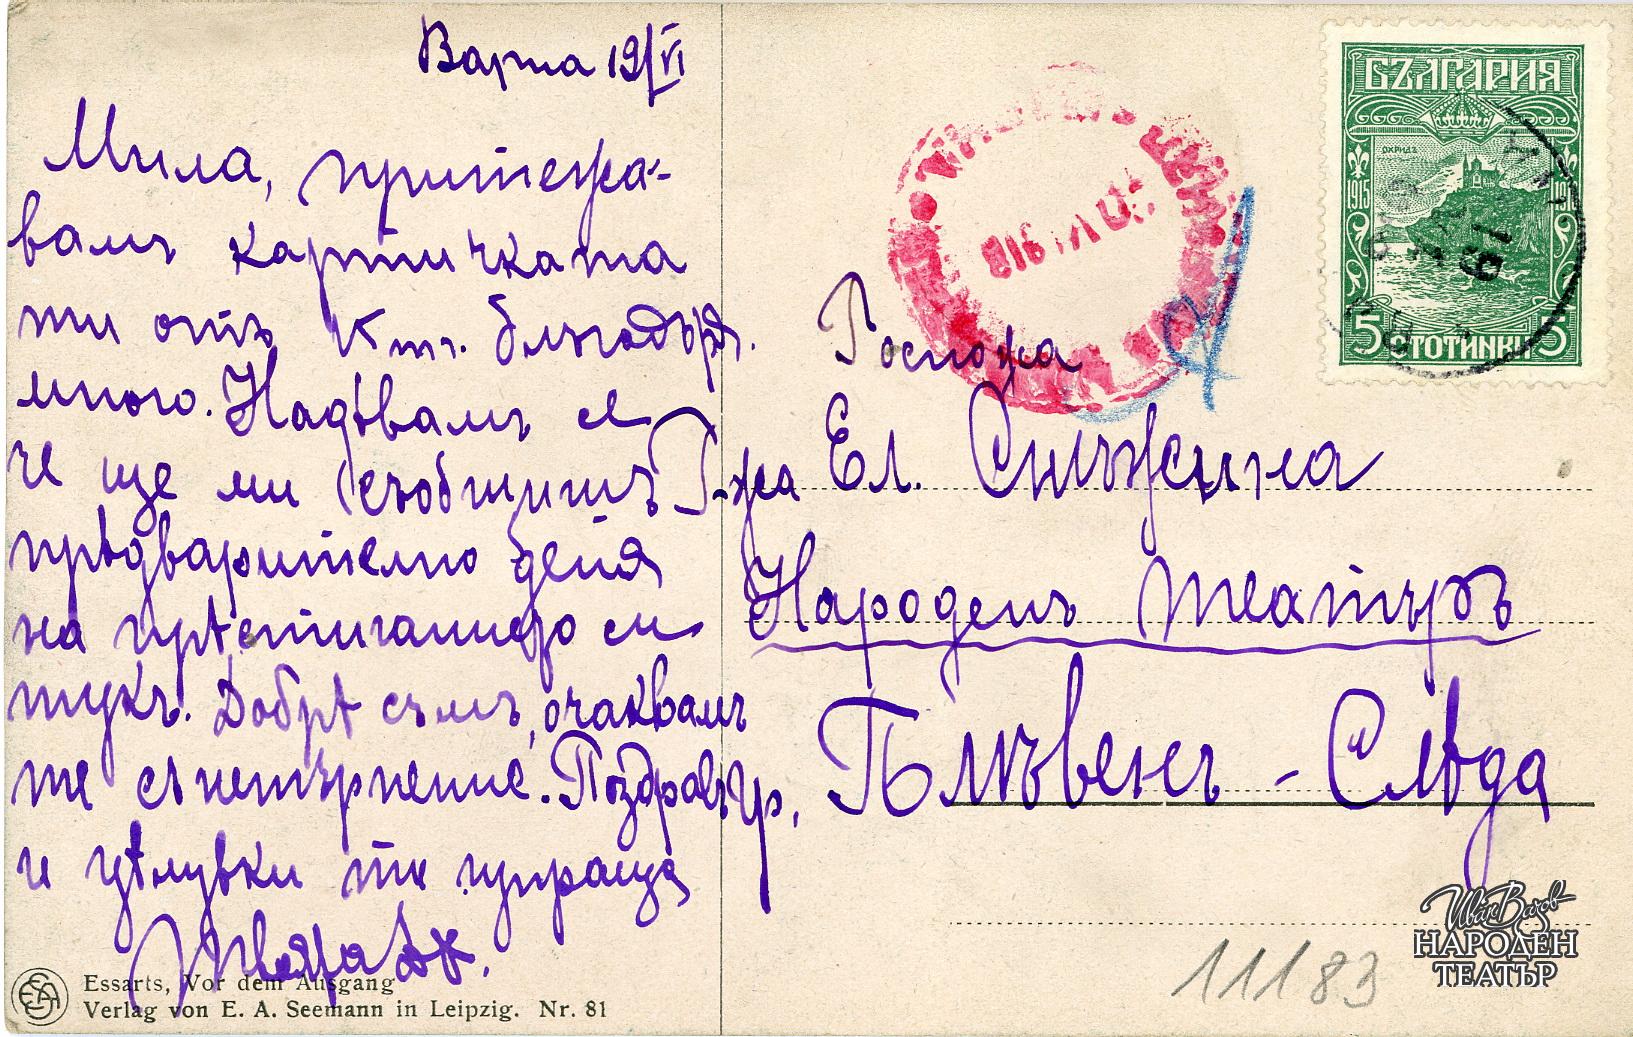 Варна 19/VI
Мила, притежа-
вамъ картичката
ти отъ К благодаря.
много. Надѣвамъ се
че ще ми съобщишъ
прѣдварително деня
на прѣстиганието си
тукъ. Добрѣ съмъ, очаквамъ
те съ нетърпение. Поздрави,
и цѣлувки ти изпраща
Госпожа
Г-жа Ел. Снѣжина
Народенъ театъръ
Плѣвенъ - Слѣда
БЪЛГАРИЯ
ОХРИДЪ
1915
5 СТОТИНКИ 5
Essarts, Vor dem Ausgang
Verlag von E. A. Seemann in Leipzig. Nr. 81
11183
Иван Вазов
НАРОДЕН
ТЕАТЪР